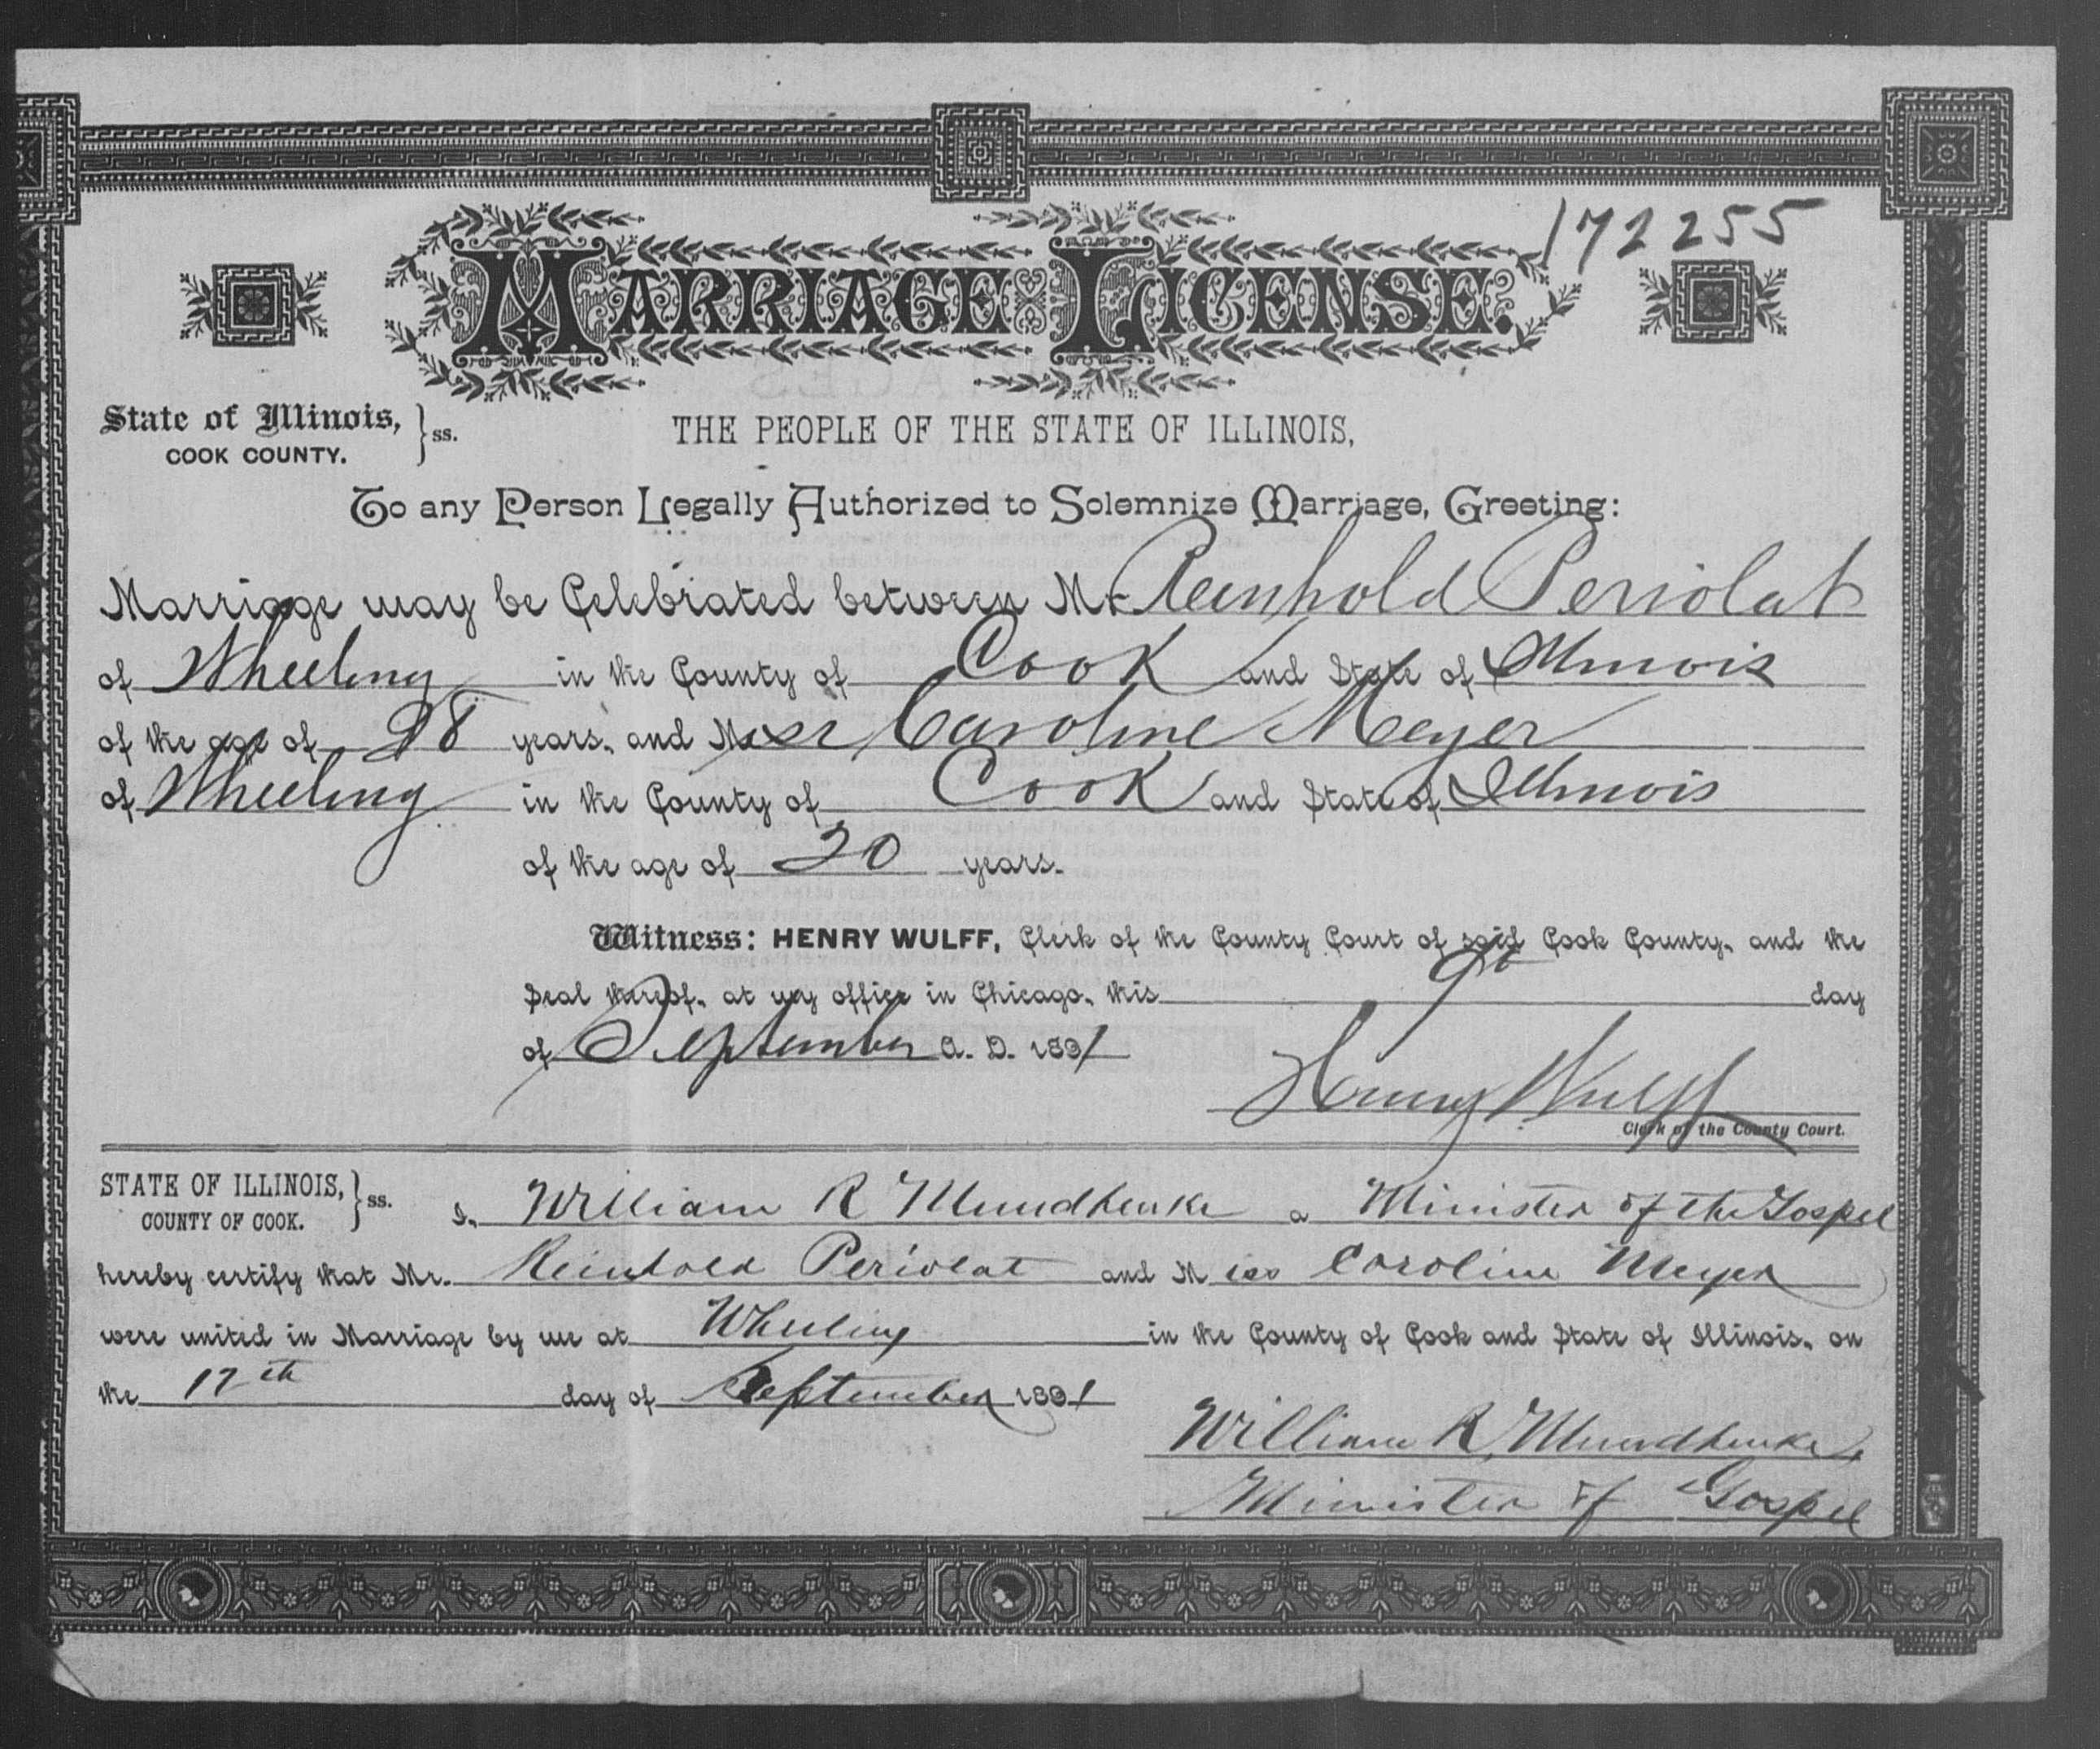 172255
MARRIAGE LICENSE.
State of Illinois, } ss. THE PEOPLE OF THE STATE OF ILLINOIS,
COOK COUNTY.
To any Person Legally Authorized to Solemnize Marriage, Greeting:
Marriage may be Celebrated between Mr Reinhold Periolat
of Wheeling in the County of Cook and State of Illinois
of the age of 28 years, and Miss Caroline Meyer
of Wheeling in the County of Cook and State of Illinois
of the age of 20 years.
Witness: HENRY WULFF, Clerk of the County Court of said Cook County, and the
Seal thereof, at my office in Chicago, this 9th day
of September A. D. 1891
Henry Wulff
Clerk of the County Court.
STATE OF ILLINOIS, } ss. I, William R Mundhenke a Minister of the Gospel
COUNTY OF COOK.
hereby certify that Mr. Reinhold Periolat and Miss Caroline Meyer
were united in Marriage by me at Wheeling in the County of Cook and State of Illinois, on
the 17th day of September 1891
William R. Mundhenke,
Minister of Gospel